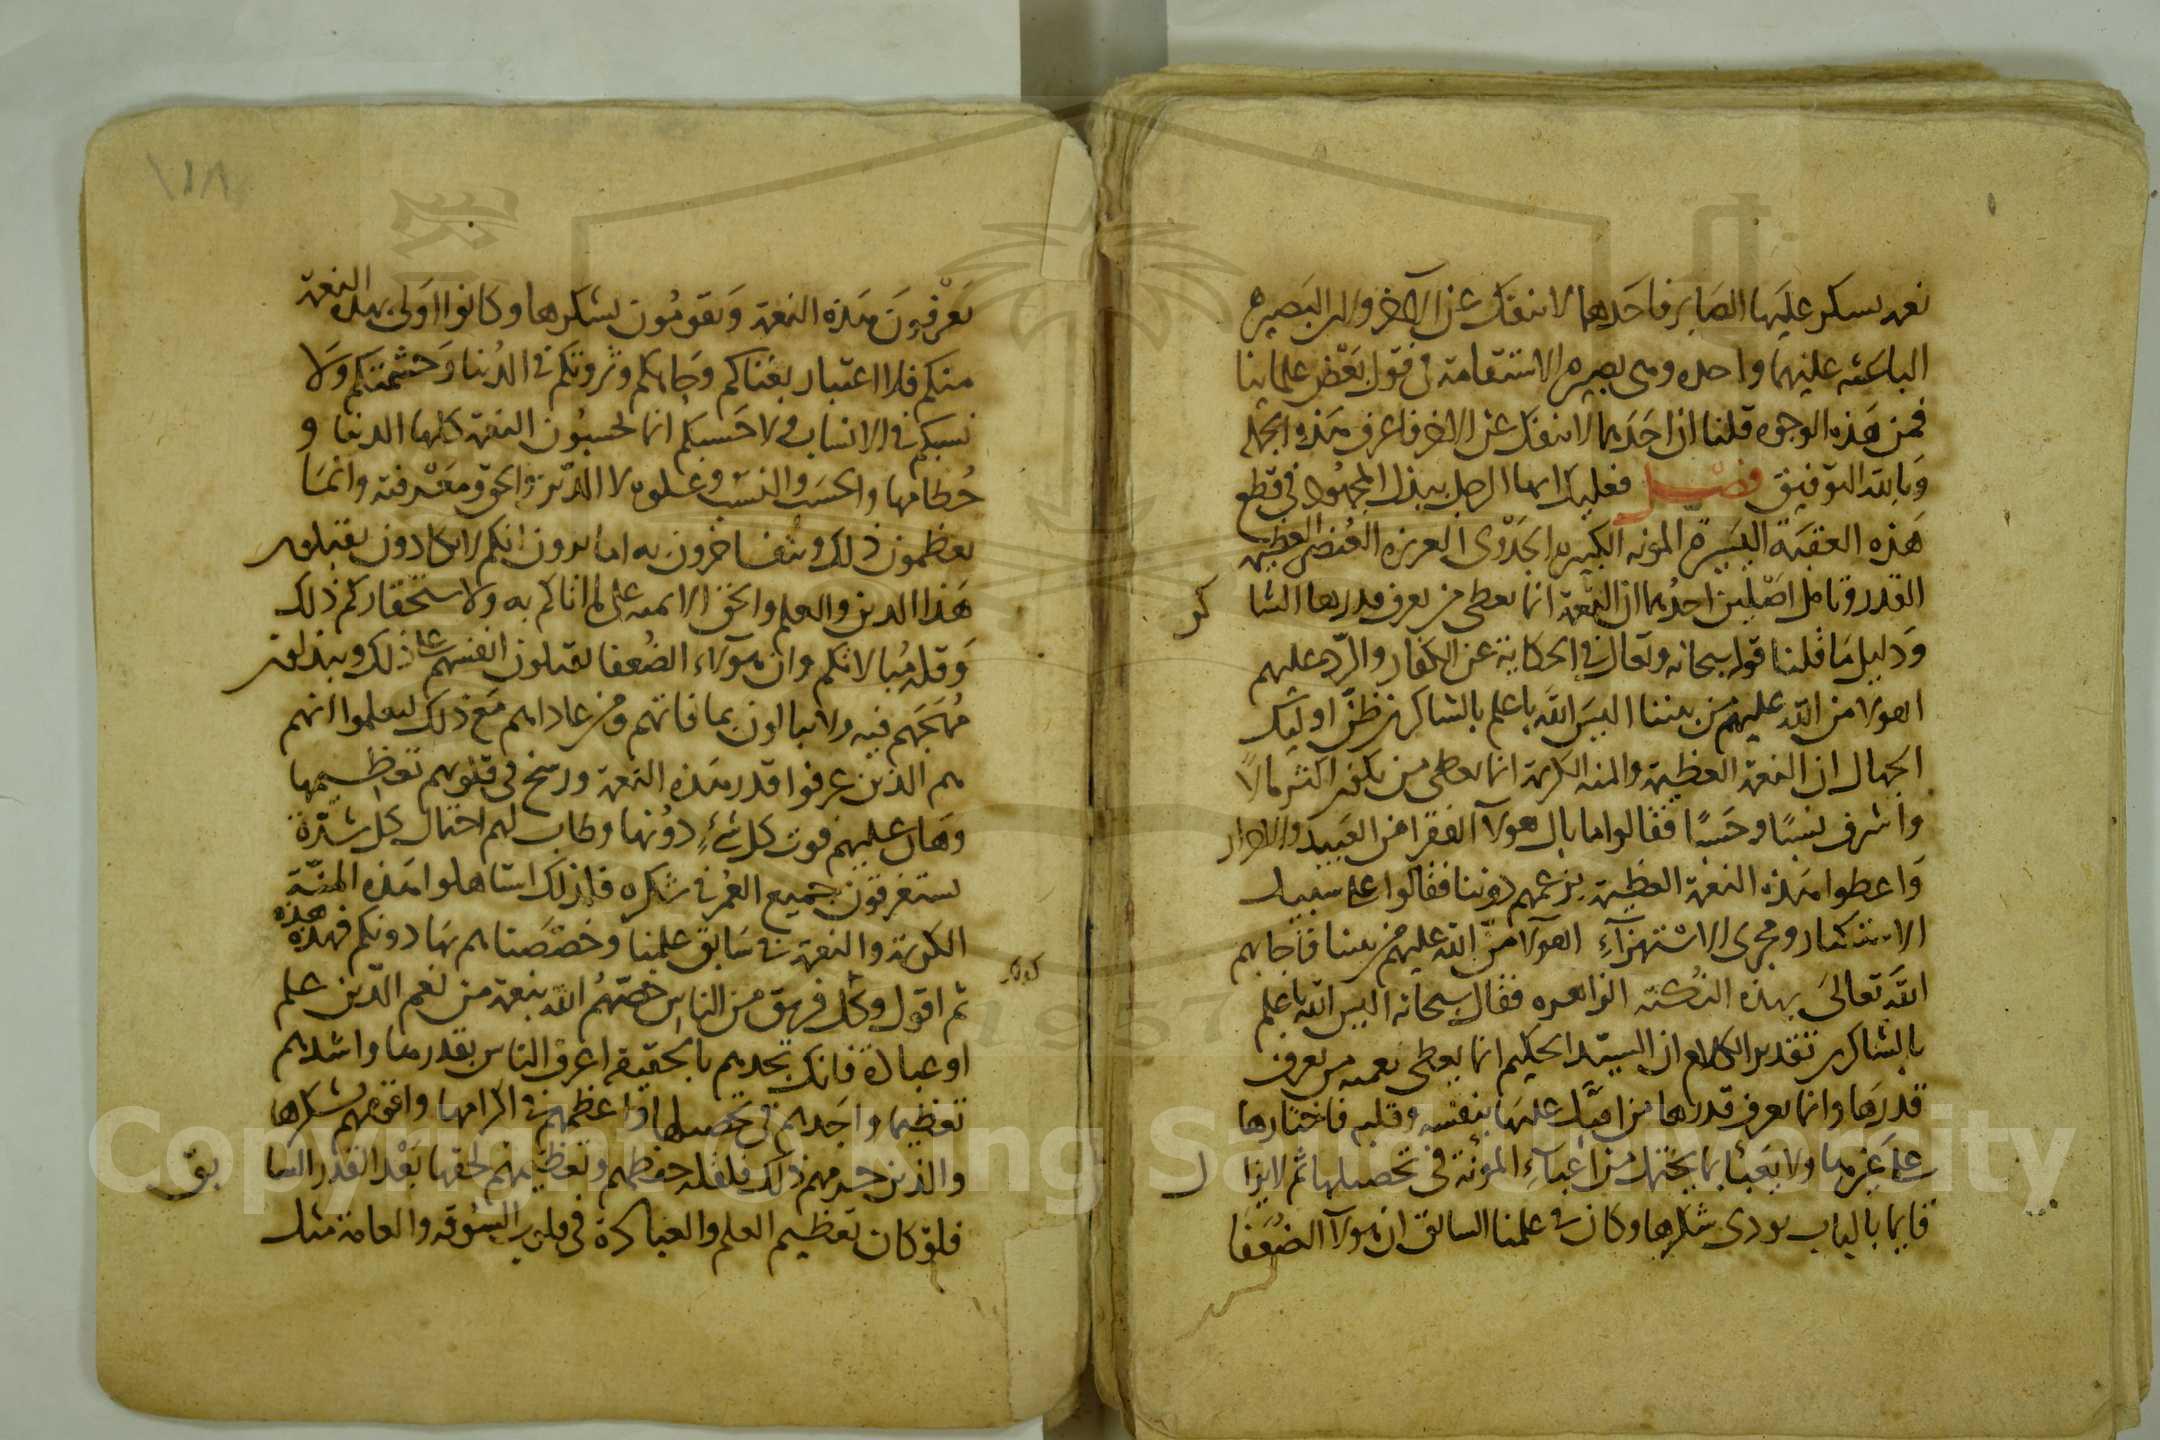 نعمه يشكر عليها الصابر فاحدهما لا تنفك عن الاخر ولان البصيره
الباعثه عليهما واحده وهي بصيره الاستقامة في قول بعض علمائنا
فمن هذه الوجوه قلنا ان احدهما لا تنفك عن الاخر فاعرف هذه الجمله
وبالله التوفيق فصل فعليك ايها الرجل ببذل المجهود في قطع
هذه العقبة اليسيرة المونه الكبيره الجدوى العزيزه العنصر العظيمه
القدر وتامل اصلين احدهما ان النعمة انما يعطى من يعرف قدرها الشا كر
ودليل ما قلنا قوله سبحانه وتعالى في الحكاية عن الكفار والرد عليهم
اهولا من الله عليهم من بيننا اليس الله باعلم بالشاكرين ظن اوليك
الجهال ان النعمة العظيمة والمنه الكريمة انما يعطى من يكون اكثر مالاً
واشرف نسبًا وحسبًا فقالوا ما بال هولا الفقرا من العبيد والاحرار
واعطوا هذه النعمة العظيمة بزعمهم دوننا فقالوا على سبيل
الاستكبار ومجرى الاستهزآءِ اهولا من الله عليهم من بيننا فاجابهم
الله تعالى بهذه النكته الزاهره فقال سبحانه اليس الله باعلم
بالشاكرين تقدير الكلام ان السيد الحكيم انما يعطى نعمه من يعرف
قدرها وانما يعرف قدرها من اقبل عليها بنفسه وقلبه فاختارها
على غيرها ولا يعبأ بما يحتمل من اعبآءِ المؤنة في تحصيلها ثم لا يزا ل
قايما بالباب يودى شكرها وكان في علمنا السابق ان هولآ الضعفا
يعرفون هذه النعمة ويقومون بشكرها وكانوا اولى بهذه النعمة
منكم فلا اعتبار بغناكم وجاهكم وثروتكم في الدنيا وحشمتكم ولا
نسبكم في الانساب ولا حسبكم انما تحسبون النعمة كلها الدنيا و
حُطامها والحسب والنسب وعلوه لا الدين والحق ومعرفته وانما
يعظمون ذلك ويتفاخرون به اما يرون انكم لا تكادون تقبلون
هذا الدين والعلم والحق الا بمنه على من اتاكم به ولاستحقاركم ذلك
وقله مبالاتكم وان هولآء الضُعفا يقتلون انفسهم على ذلك ويبذلون
مُهَجَهم فيه ولا يبالون بما فاتهم ومن عاداهم مع ذلك ليعلموا انهم
هم الذين عرفوا قدر هذه النعمة ورسخ في قلوبهم تعظيمها
وهان عليهم فوت كل شيءٍ دونها وطاب لهم احتمال كل شدة
يستغرقون جميع العُمر في شكره فلذلك استاهلوا هذه المنة
الكريمة والنعمة في سابق علمنا وخصصناهم بها دونكم فهذه هذه
ثم اقول وكل فريق من الناس خصهُم الله بنعمة من نعم الدين علم
او عبادة فانك تجدهم بالحقيقة اعرف الناس بقدرها واشدهم
تعظيما واجدهم في تحصيلها واعظمهم في اكرامها واقومهم بشكرها
والذين حرمهم ذلك فلقله حفظهم وتعظيمهم لحقها بعد القدر السا بق
فلو كان تعظيم العلم والعبادة في قلوب السُوقه والعامة مثل